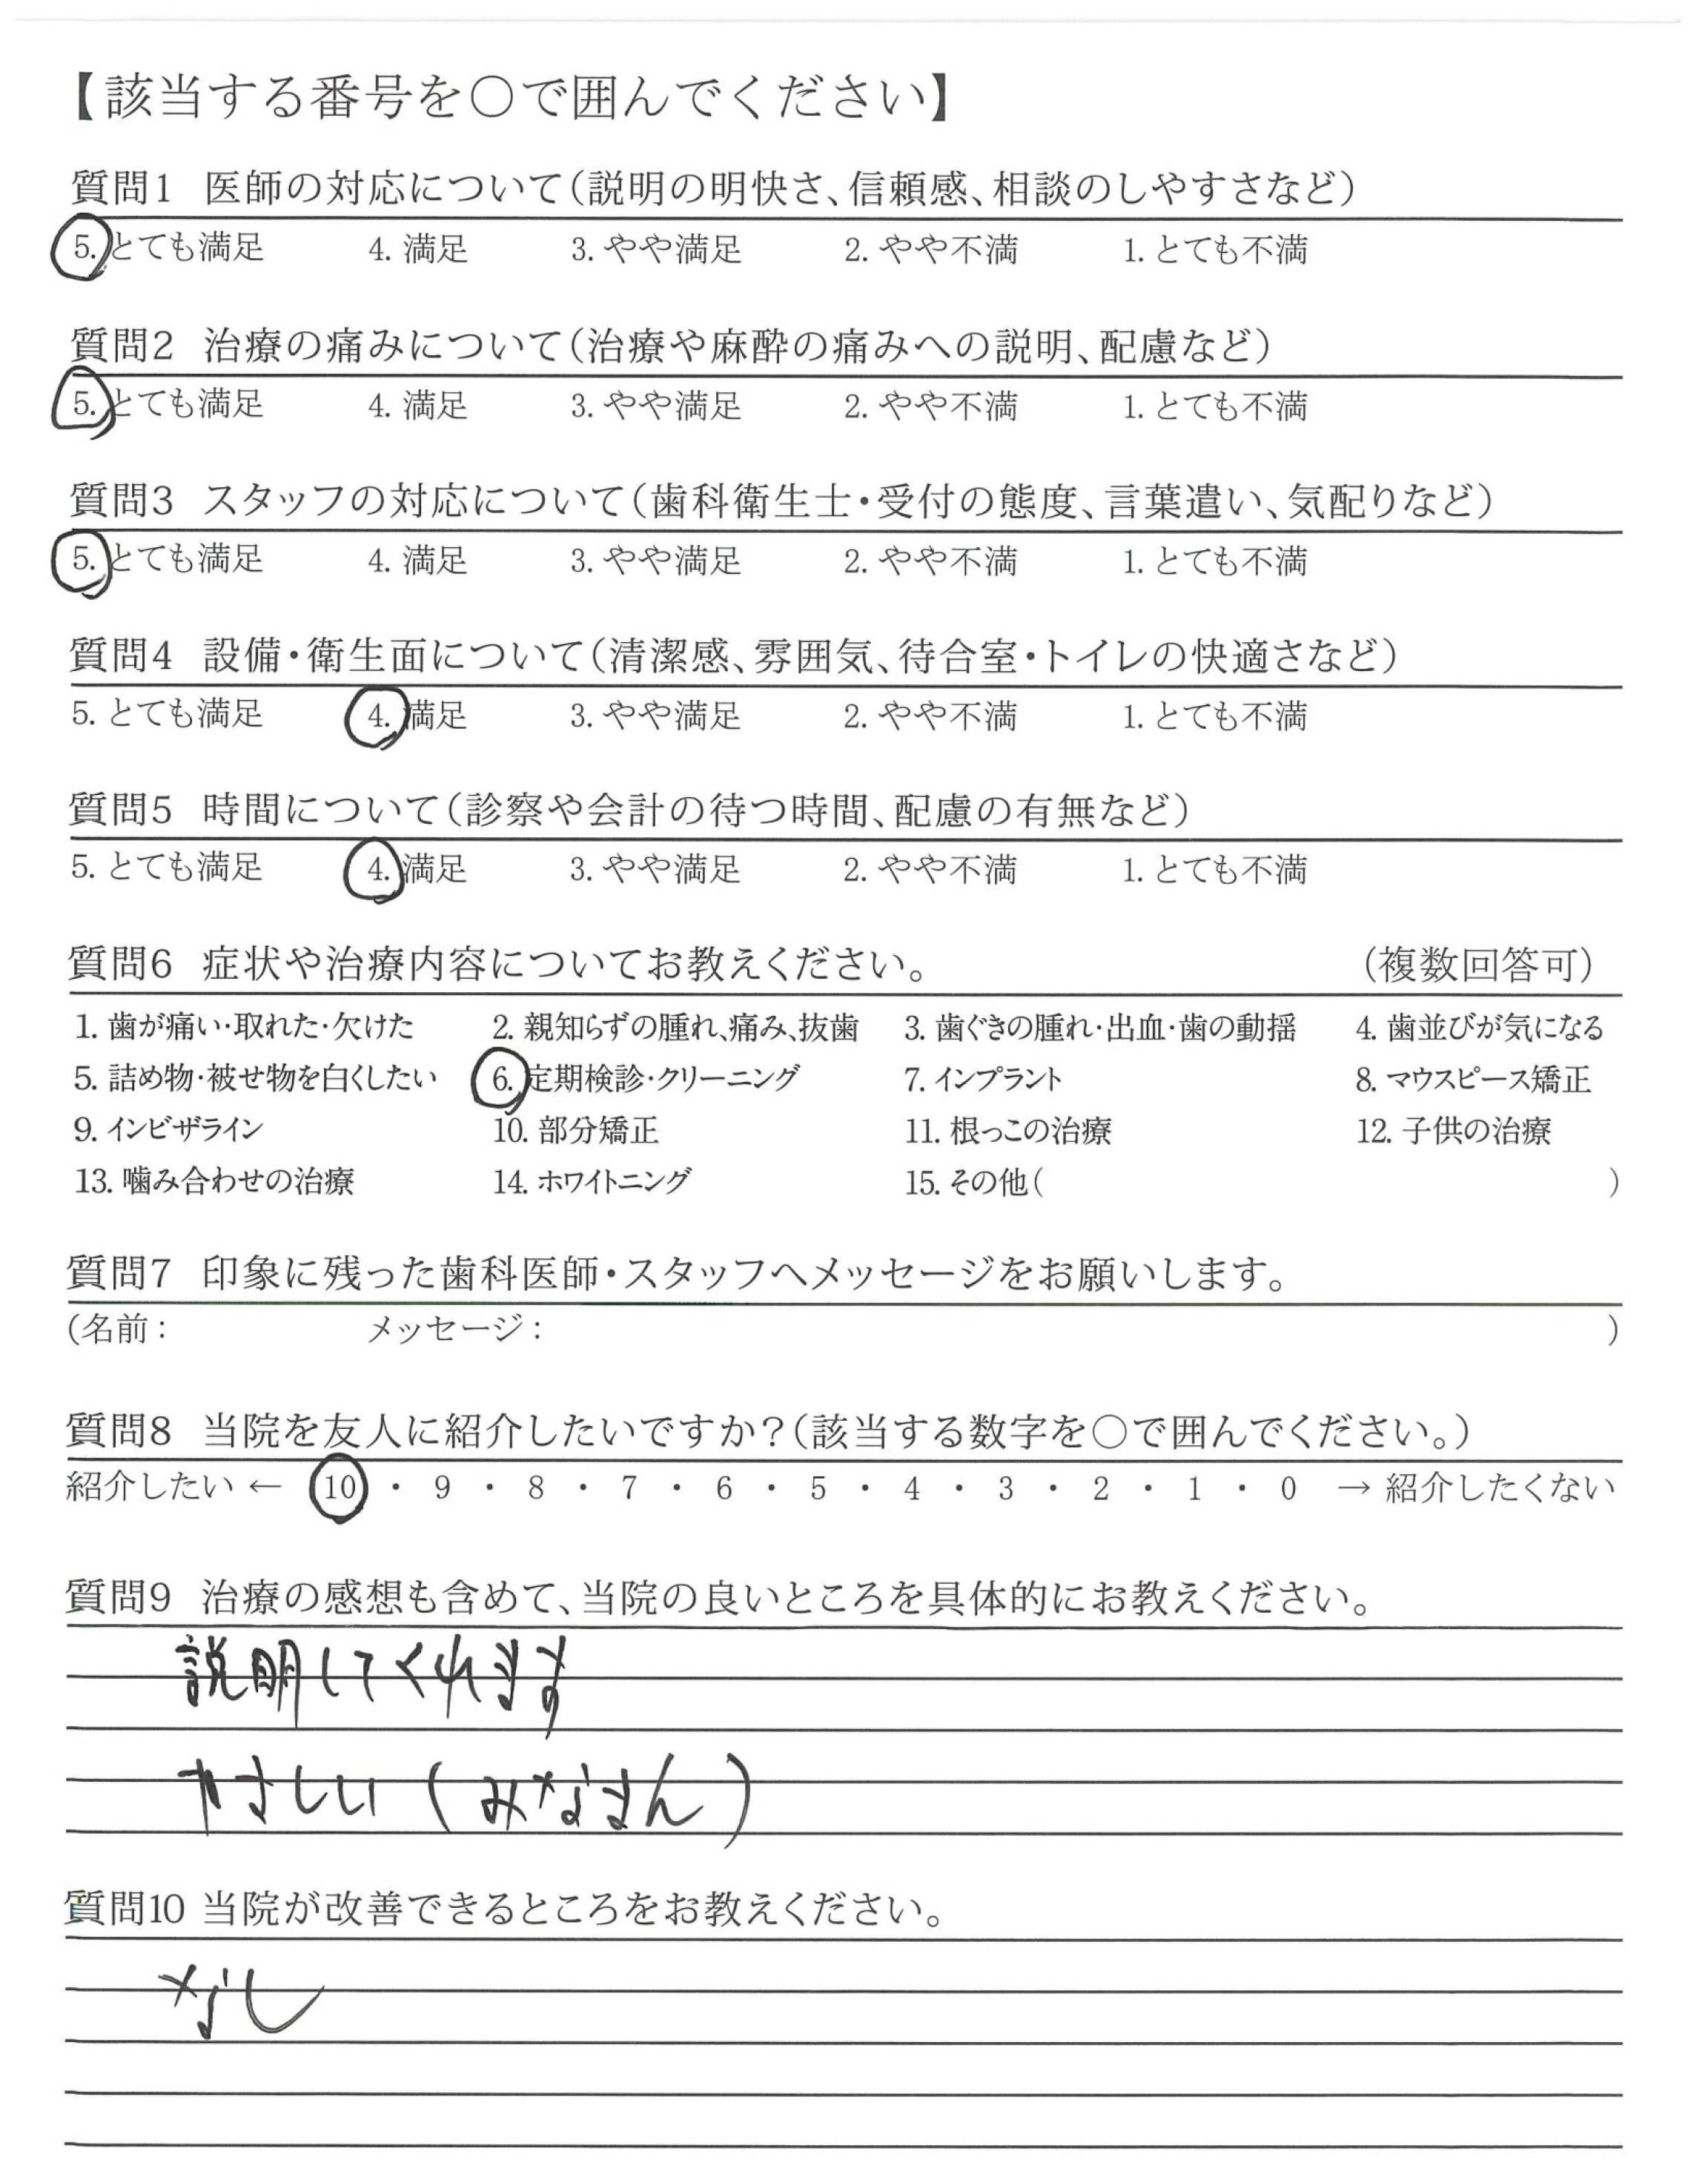 【該当する番号を○で囲んでください】
質問1 医師の対応について(説明の明快さ、信頼感、相談のしやすさなど)
5. とても満足 4. 満足 3. やや満足 2. やや不満 1. とても不満
質問2 治療の痛みについて(治療や麻酔の痛みへの説明、配慮など)
5. とても満足 4. 満足 3. やや満足 2. やや不満 1. とても不満
質問3 スタッフの対応について(歯科衛生士・受付の態度、言葉遣い、気配りなど)
5. とても満足 4. 満足 3. やや満足 2. やや不満 1. とても不満
質問4 設備・衛生面について(清潔感、雰囲気、待合室・トイレの快適さなど)
5. とても満足 4. 満足 3. やや満足 2. やや不満 1. とても不満
質問5 時間について(診察や会計の待つ時間、配慮の有無など)
5. とても満足 4. 満足 3. やや満足 2. やや不満 1. とても不満
質問6 症状や治療内容についてお教えください。 (複数回答可)
1. 歯が痛い・取れた・欠けた 2. 親知らずの腫れ、痛み、抜歯 3. 歯ぐきの腫れ・出血・歯の動揺 4. 歯並びが気になる
5. 詰め物・被せ物を白くしたい 6. 定期検診・クリーニング 7. インプラント 8. マウスピース矯正
9. インビザライン 10. 部分矯正 11. 根っこの治療 12. 子供の治療
13. 噛み合わせの治療 14. ホワイトニング 15. その他( )
質問7 印象に残った歯科医師・スタッフへメッセージをお願いします。
(名前: メッセージ: )
質問8 当院を友人に紹介したいですか?(該当する数字を○で囲んでください。)
紹介したい ← 10 ・ 9 ・ 8 ・ 7 ・ 6 ・ 5 ・ 4 ・ 3 ・ 2 ・ 1 ・ 0 → 紹介したくない
質問9 治療の感想も含めて、当院の良いところを具体的にお教えください。
説明してくれます
やさしい(みなさん)
質問10 当院が改善できるところをお教えください。
なし